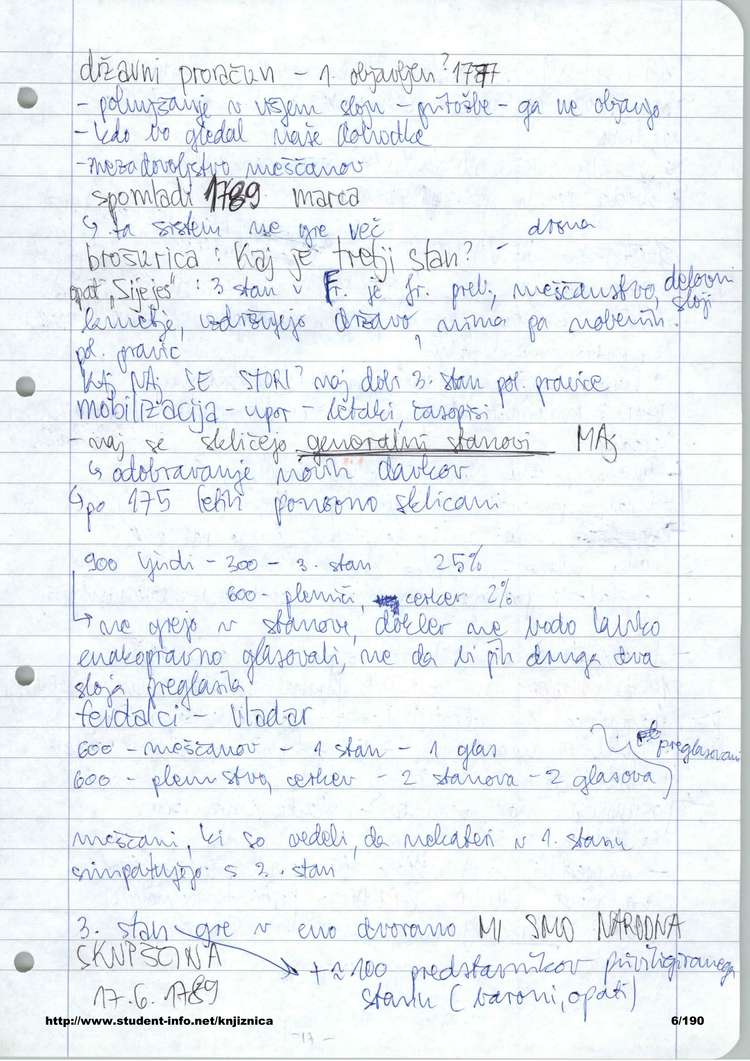 državni proračun - 1. objavljen? 1787
- pohujšanje v višjem sloju - pritožbe - ga ne objavijo
- kdo bo gledal naše dohodke
- nezadovoljstvo meščanov
spomladi 1789 marca
↳ ta sistem ne gre več
brošurica: Kaj je tretji stan? - drobna
opat „Sijejes": 3 stan v Fr. je fr. preb., meščanstvo, delovni sloji
kmečtje, vzdržujejo državo nima pa nobenih
pol. pravic
KAJ NAJ SE STORI? naj dobi 3. stan pol. pravice
mobilizacija - upor - letaki, časopisi
- naj se skličejo generalni stanovi MAJ
↳ odobravanje novih davkov
↳ po 175 letih ponovno sklicani
900 ljudi - 300 - 3. stan 25%
600 - plemiči, cerkev 2%
→ ne grejo v stanove, dokler ne bodo lahko
enakopravno glasovali, ne da bi jih druga dva
sloja preglasila
fevdalci - vladar
600 - meščanov - 1 stan - 1 glas
600 - plemstvo, cerkev - 2 stanova - 2 glasova
preglasovani
meščani, ki so vedeli, da nekateri v 1. stanu
simpatizirajo s 3. stan
3. stan gre v eno dvorano MI SMO NARODNA
SKUPŠČINA
→ + ≈ 100 predstavnikov priviligiranega
17.6. 1789
stanu (baroni, opati)
http://www.student-info.net/knjiznica
6/190
- 17 -